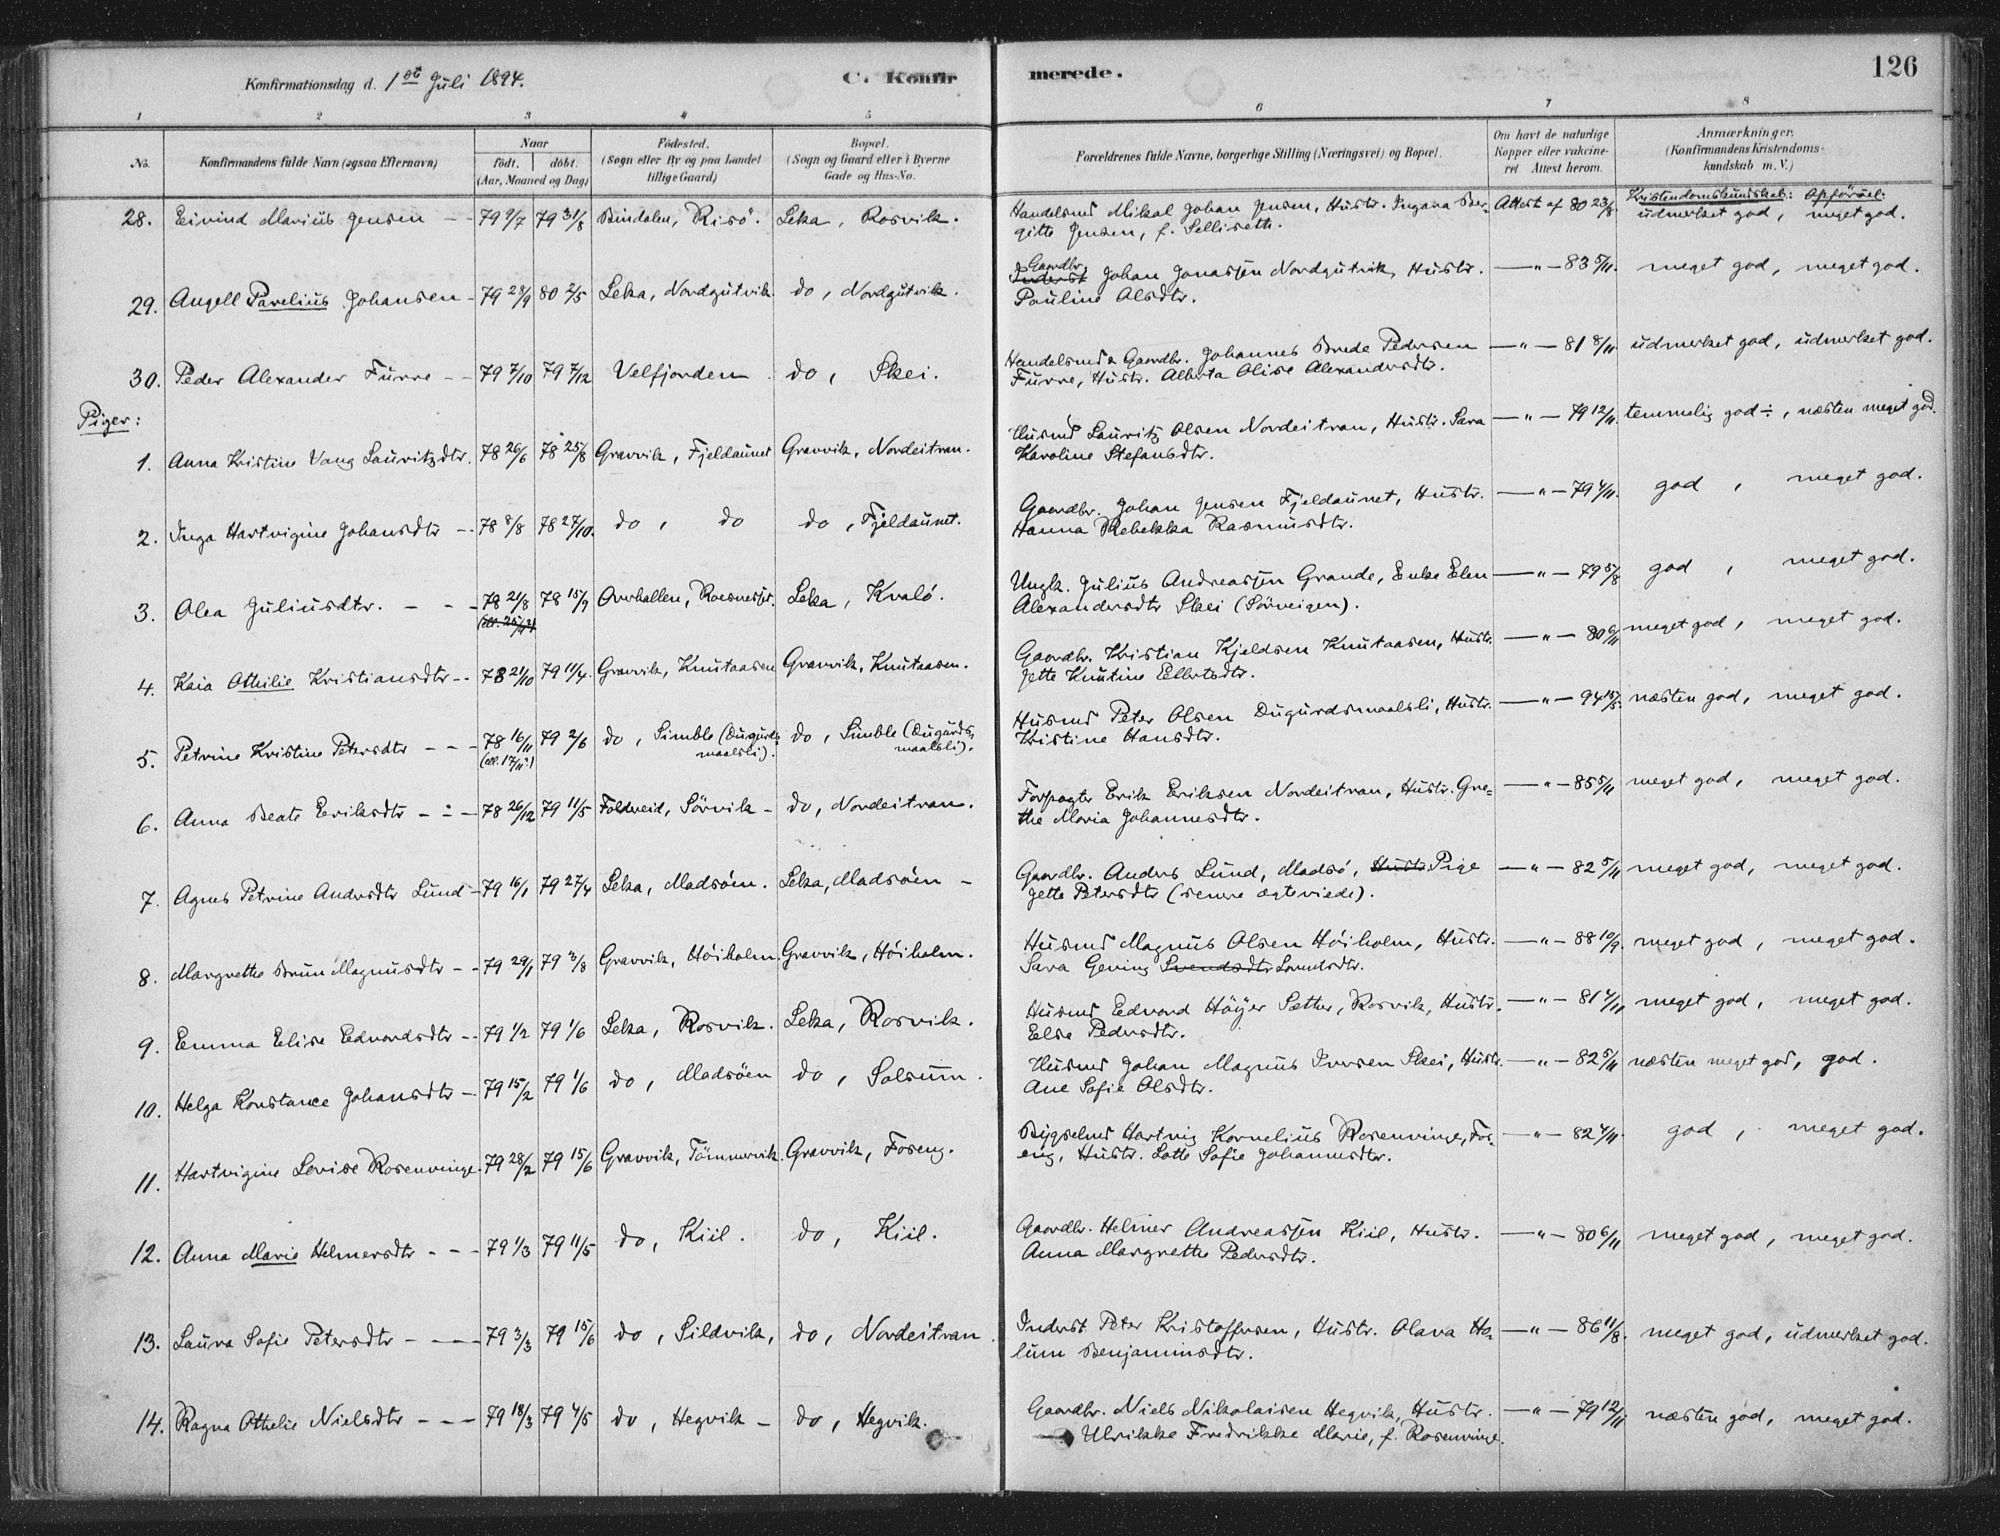 Konfirmationsdag d. 1ste Juli 1894. C. Konfirmerede. 126
1 2 3 4 5 6 7 8
No. Konfirmandens fulde Navn (ogsaa Efternavn) Naar født. døbt. (Aar, Maaned og Dag) Fødested. (Sogn eller By og paa Landet tillige Gaard) Bopæl. (Sogn og Gaard eller i Byerne Gade og Hus-No. Forældrenes fulde Navne, borgerlige Stilling (Næringsvei) og Bopæl. Om havt de naturlige Kopper eller vakcineret. Attest herom. Anmærkninger. (Konfirmandens Kristendomskundskab m. V.)
Kristendomskundskab: Opførsel:
28. Eivind Marius Jensen – – 79 2/7 79 31/8 Bindalen, Risö. Leka, Rosvik. Handelsmd Mikal Johan Jensen, Hustr. Ingana Ber-
gitte Jensen, f. Sellisette. Attest af 80 23/8. udmerket god, meget god.
29. Angell Parelius Johansen – 79 28/9 80 2/5 Leka, Nordgutvik. do, Nordgutvik. Inderst Gaardbr. Johan Jonassen Nordgutvik, Hustr.
Pauline Olsdtr. –"– 83 5/11. meget god, meget god.
30. Peder Alexander Furre – – 79 7/10 79 7/12 Velfjorden do, Skei. Handelsmd & Gaardbr. Johannes Brede Pedersen
Furre, Hustr. Alberta Olise Alexandersdtr. –"– 81 8/11. udmerket god, udmerket god.
Piger:
1. Anna Kristine Vang Lauritzdtr. 78 26/6 78 25/8 Gravvik, Fjeldaunet Gravvik, Nordeitran. Husmd Lauritz Olsen Nordeitran, Hustr. Sara
Karoline Stefansdtr. –"– 79 12/11. temmelig god÷, næsten meget god.
2. Inga Hartvigine Johansdtr – – 78 8/8 78 27/10. do, do do, Fjeldaunet. Gaardbr. Johan Jensen Fjeldaunet, Hustr.
Hanna Rebekka Rasmusdtr. –"– 79 4/11. god, meget god.
3. Olea Juliusdtr. – – – 78 21/8 78 15/9 Overhallen, Leka, Kvalö. Ungk. Julius Andreassen Grande, Enke Elen
Alexandersdtr Skei (Sörveigen). –"– 79 5/8 god, meget god.
4. Kaia Othilie Kristiansdtr – – 78 21/10 79 11/4. Gravvik, Knutaasen Gravvik, Knutaasen. Gaardbr. Kristian Kjeldsen Knutaasen, Hustr.
Jette Knutine Elbertsdtr. –"– 80 6/11 meget god, meget god.
5. Petrine Kristine Petersdtr – – – 78 16/11 (ell. 17/11?) 79 2/6 do, Simble (Dugurdsmaalsli). do, Simble (Dugurdsmaalsli). Husmd Peter Olsen Dugurdsmaalsli, Hustr.
Kristine Hansdtr. –"– 94 15/5. næsten god, meget god.
6. Anna Beate Eriksdtr – – – 78 26/12 79 11/5 Foldereid, Sörvik – do, Nordeitran. Forpagter Erik Eriksen Nordeitran, Hustr. Gre-
the Maria Johannesdtr. –"– 85 5/11 meget god, meget god.
7. Agnes Petrine Andersdtr Lund – 79 16/1 79 27/4 Leka, Madsöen. Leka, Madsöen – Gaardbr. Anders Lund, Madsö, Hustr. Pige
Jette Petersdtr (senere ægteviede). –"– 82 5/11 meget god, meget god.
8. Margrethe Brun Magnusdtr – – 79 29/1 79 3/8 Gravvik, Höiholm. Gravvik, Höiholm. Husmd Magnus Olsen Höiholm, Hustr.
Sara Gening Svendsdtr Lorentsdtr. –"– 88 10/9. meget god, meget god.
9. Emma Elise Edvardsdtr – – 79 1/2 79 1/6 Leka, Rosvik. Leka, Rosvik. Husmd Edvard Höyer Sætter, Rosvik, Hustr.
Else Pedersdtr. –"– 81 4/11 meget god, meget god.
10. Helga Konstance Johansdtr – 79 15/2 79 1/6 do, Madsöen do, Solsum. Husmd Johan Magnus Iversen Skei, Hustr.
Ane Sofie Olsdtr. –"– 82 5/11 næsten meget god, god.
11. Hartvigine Lovise Rosenvinge. 79 28/2 79 15/6 Gravvik, Tömmervik. Gravvik, Foseng. Bygselmd Hartvig Kornelius Rosenvinge, Fos-
eng, Hustr. Lotte Sofie Johannesdtr. –"– 82 4/11. god, meget god.
12. Anna Marie Helmersdtr – – – 79 1/3 79 11/5 do, Kiil. do, Kiil. Gaardbr. Helmer Andreassen Kiil, Hustr.
Anna Margrethe Pedersdtr. –"– 80 6/11 meget god, meget god.
13. Laura Sofie Petersdtr – – – 79 3/3 79 15/6 do, Sildvik, do, Nordeitran. Inderst Peter Kristoffersen, Hustr. Olava Ho-
lum Benjaminsdtr. –"– 86 11/8. meget god, udmerket god.
14. Ragna Othelie Nielsdtr – – – 79 18/3 79 4/5 do, Hegvik – do, Hegvik. Gaardbr. Niels Nikolaisen Hegvik, Hustr.
Ulrikke Fredrikke Marie, f. Rosenvinge. –"– 79 12/11 næsten god, meget god.